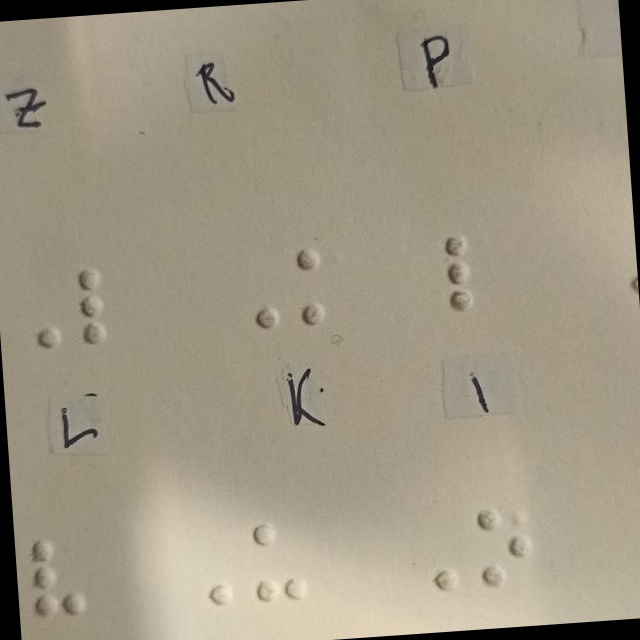 Z R P
⠠⠇ ⠠⠅ ⠇
L K l
⠧ ⠠⠥ ⠠⠕